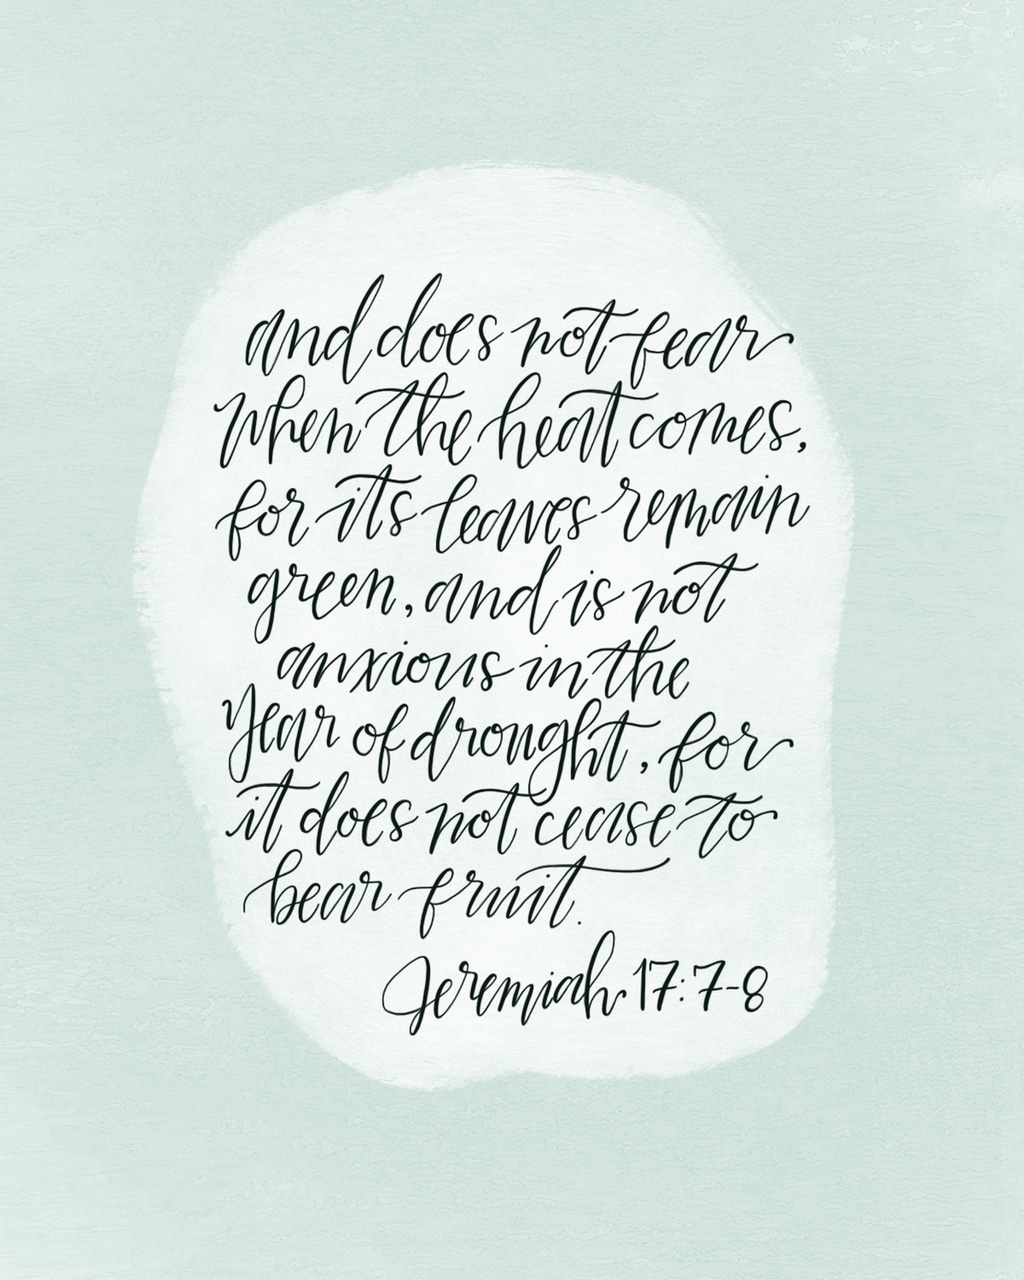 and does not fear
when the heat comes,
for its leaves remain
green, and is not
anxious in the
year of drought, for
it does not cease to
bear fruit.
Jeremiah 17:7-8